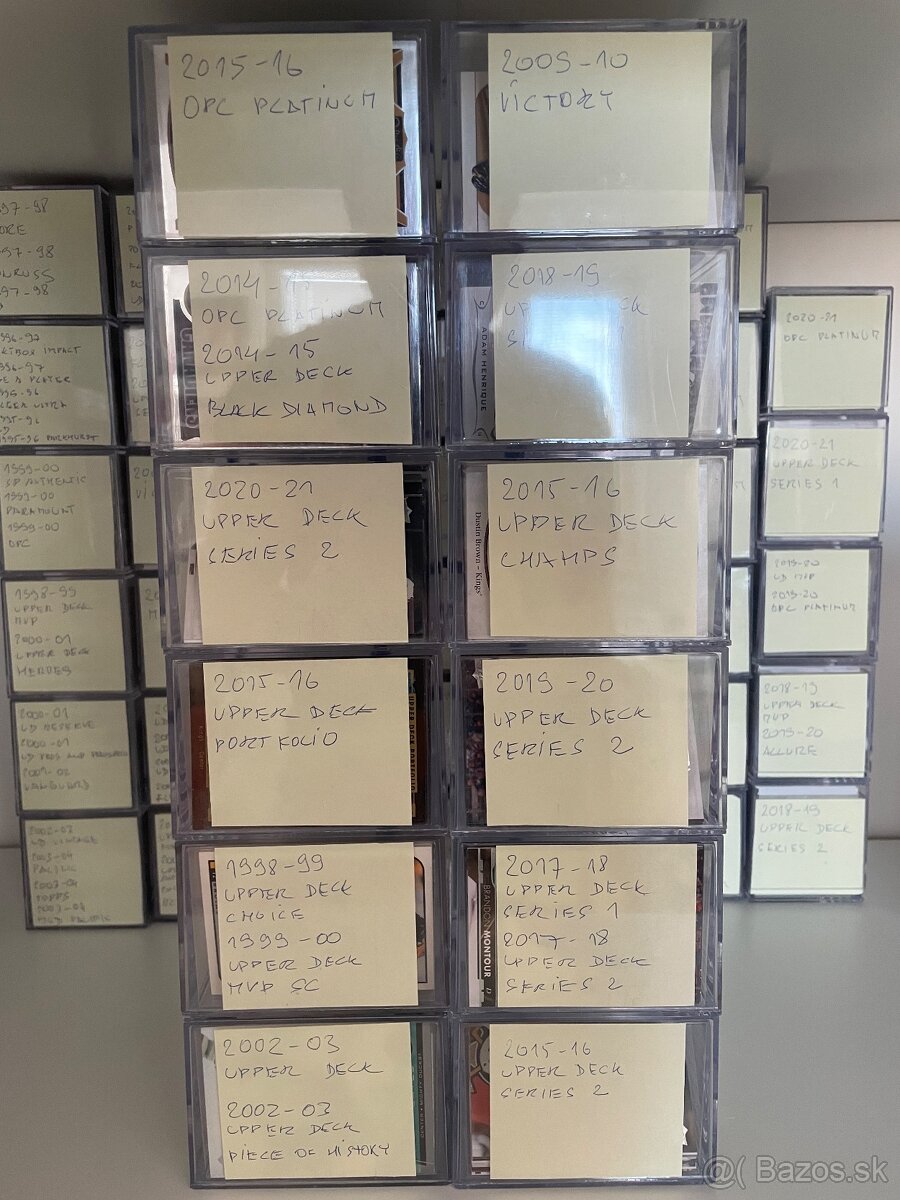 2015-16
OPC PLATINUM
2009-10
VICTORY
2014-15
OPC PLATINUM
2014-15
UPPER DECK
BLACK DIAMOND
2018-19
UPPER DECK
SERIES 1
ADAM HENRIQUE
2020-21
UPPER DECK
SERIES 2
2015-16
UPPER DECK
CHAMPS
Dustin Brown - Kings
2015-16
UPPER DECK
PORTFOLIO
UPPER DECK PORTFOLIO
2019-20
UPPER DECK
SERIES 2
1998-99
UPPER DECK
CHOICE
1999-00
UPPER DECK
MVP SC
2017-18
UPPER DECK
SERIES 1
2017-18
UPPER DECK
SERIES 2
BRANDON MONTOUR
2002-03
UPPER DECK
2002-03
UPPER DECK
PIECE OF HISTORY
2015-16
UPPER DECK
SERIES 2
97-98
97-98
97-98
96-97
IMPACT
96-97
BE A PLAYER
ULTRA
1995-96 PARKHURST
1999-00
SP AUTHENTIC
1999-00
PARAMOUNT
1999-00
OPC
1998-99
UPPER DECK
MVP
2000-01
UPPER DECK
HEROES
2000-01
UD RESERVE
2000-01
UD PROS AND PROSPECTS
2001-02
VANGUARD
2002-03
UD VINTAGE
2003-04
PACIFIC
TOPPS
2020-21
OPC PLATINUM
2020-21
UPPER DECK
SERIES 1
2019-20
UD MVP
2019-20
OPC PLATINUM
2018-19
UPPER DECK
MVP
2019-20
ALLURE
2018-19
UPPER DECK
SERIES 2
@( Bazos.sk